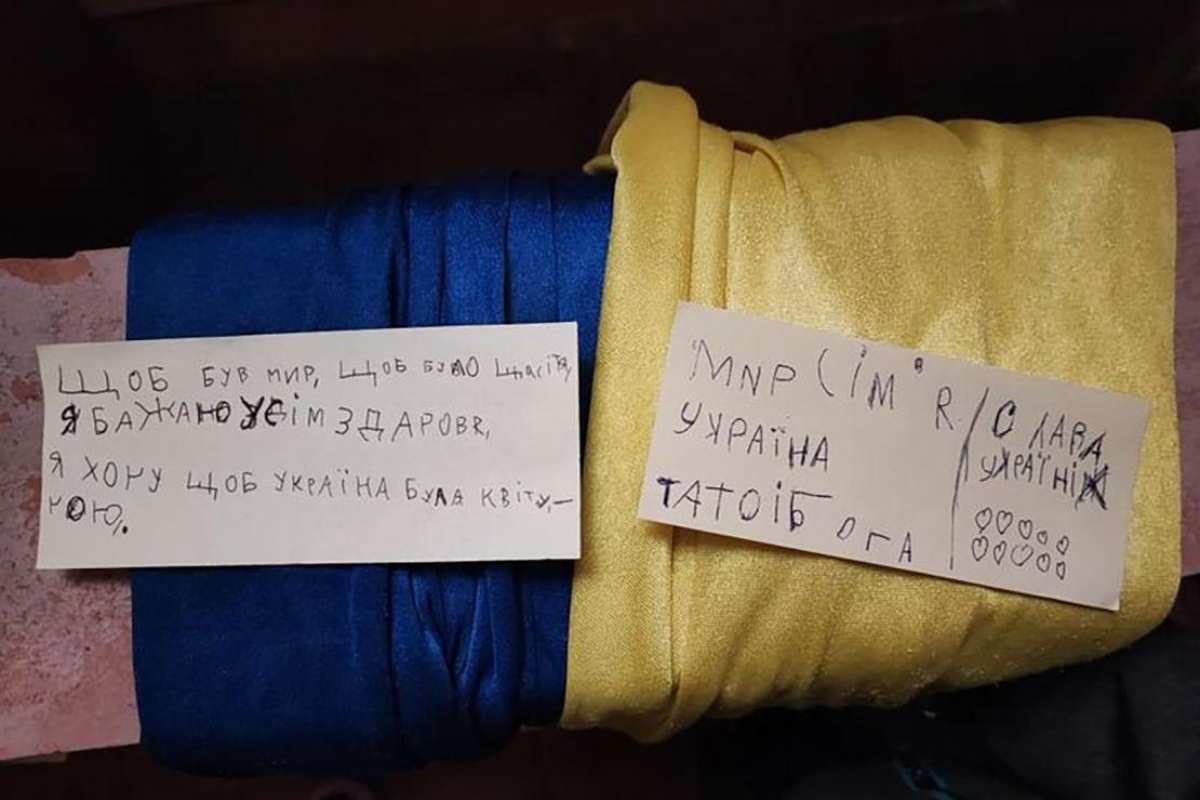 ЩОБ БУВ МИР, ЩОБ БУЛО ЩАСІТЯ,
Я БАЖАНО УСІМ ЗДАРОВЯ,
Я ХОЧУ ЩОБ УКРАЇНА БУЛА КВІТУ,–
ЧОЮ.
МИР СІМ'Я
УКРАЇНА
ТАТО І БОГА
СЛАВА
УКРАЇНІ